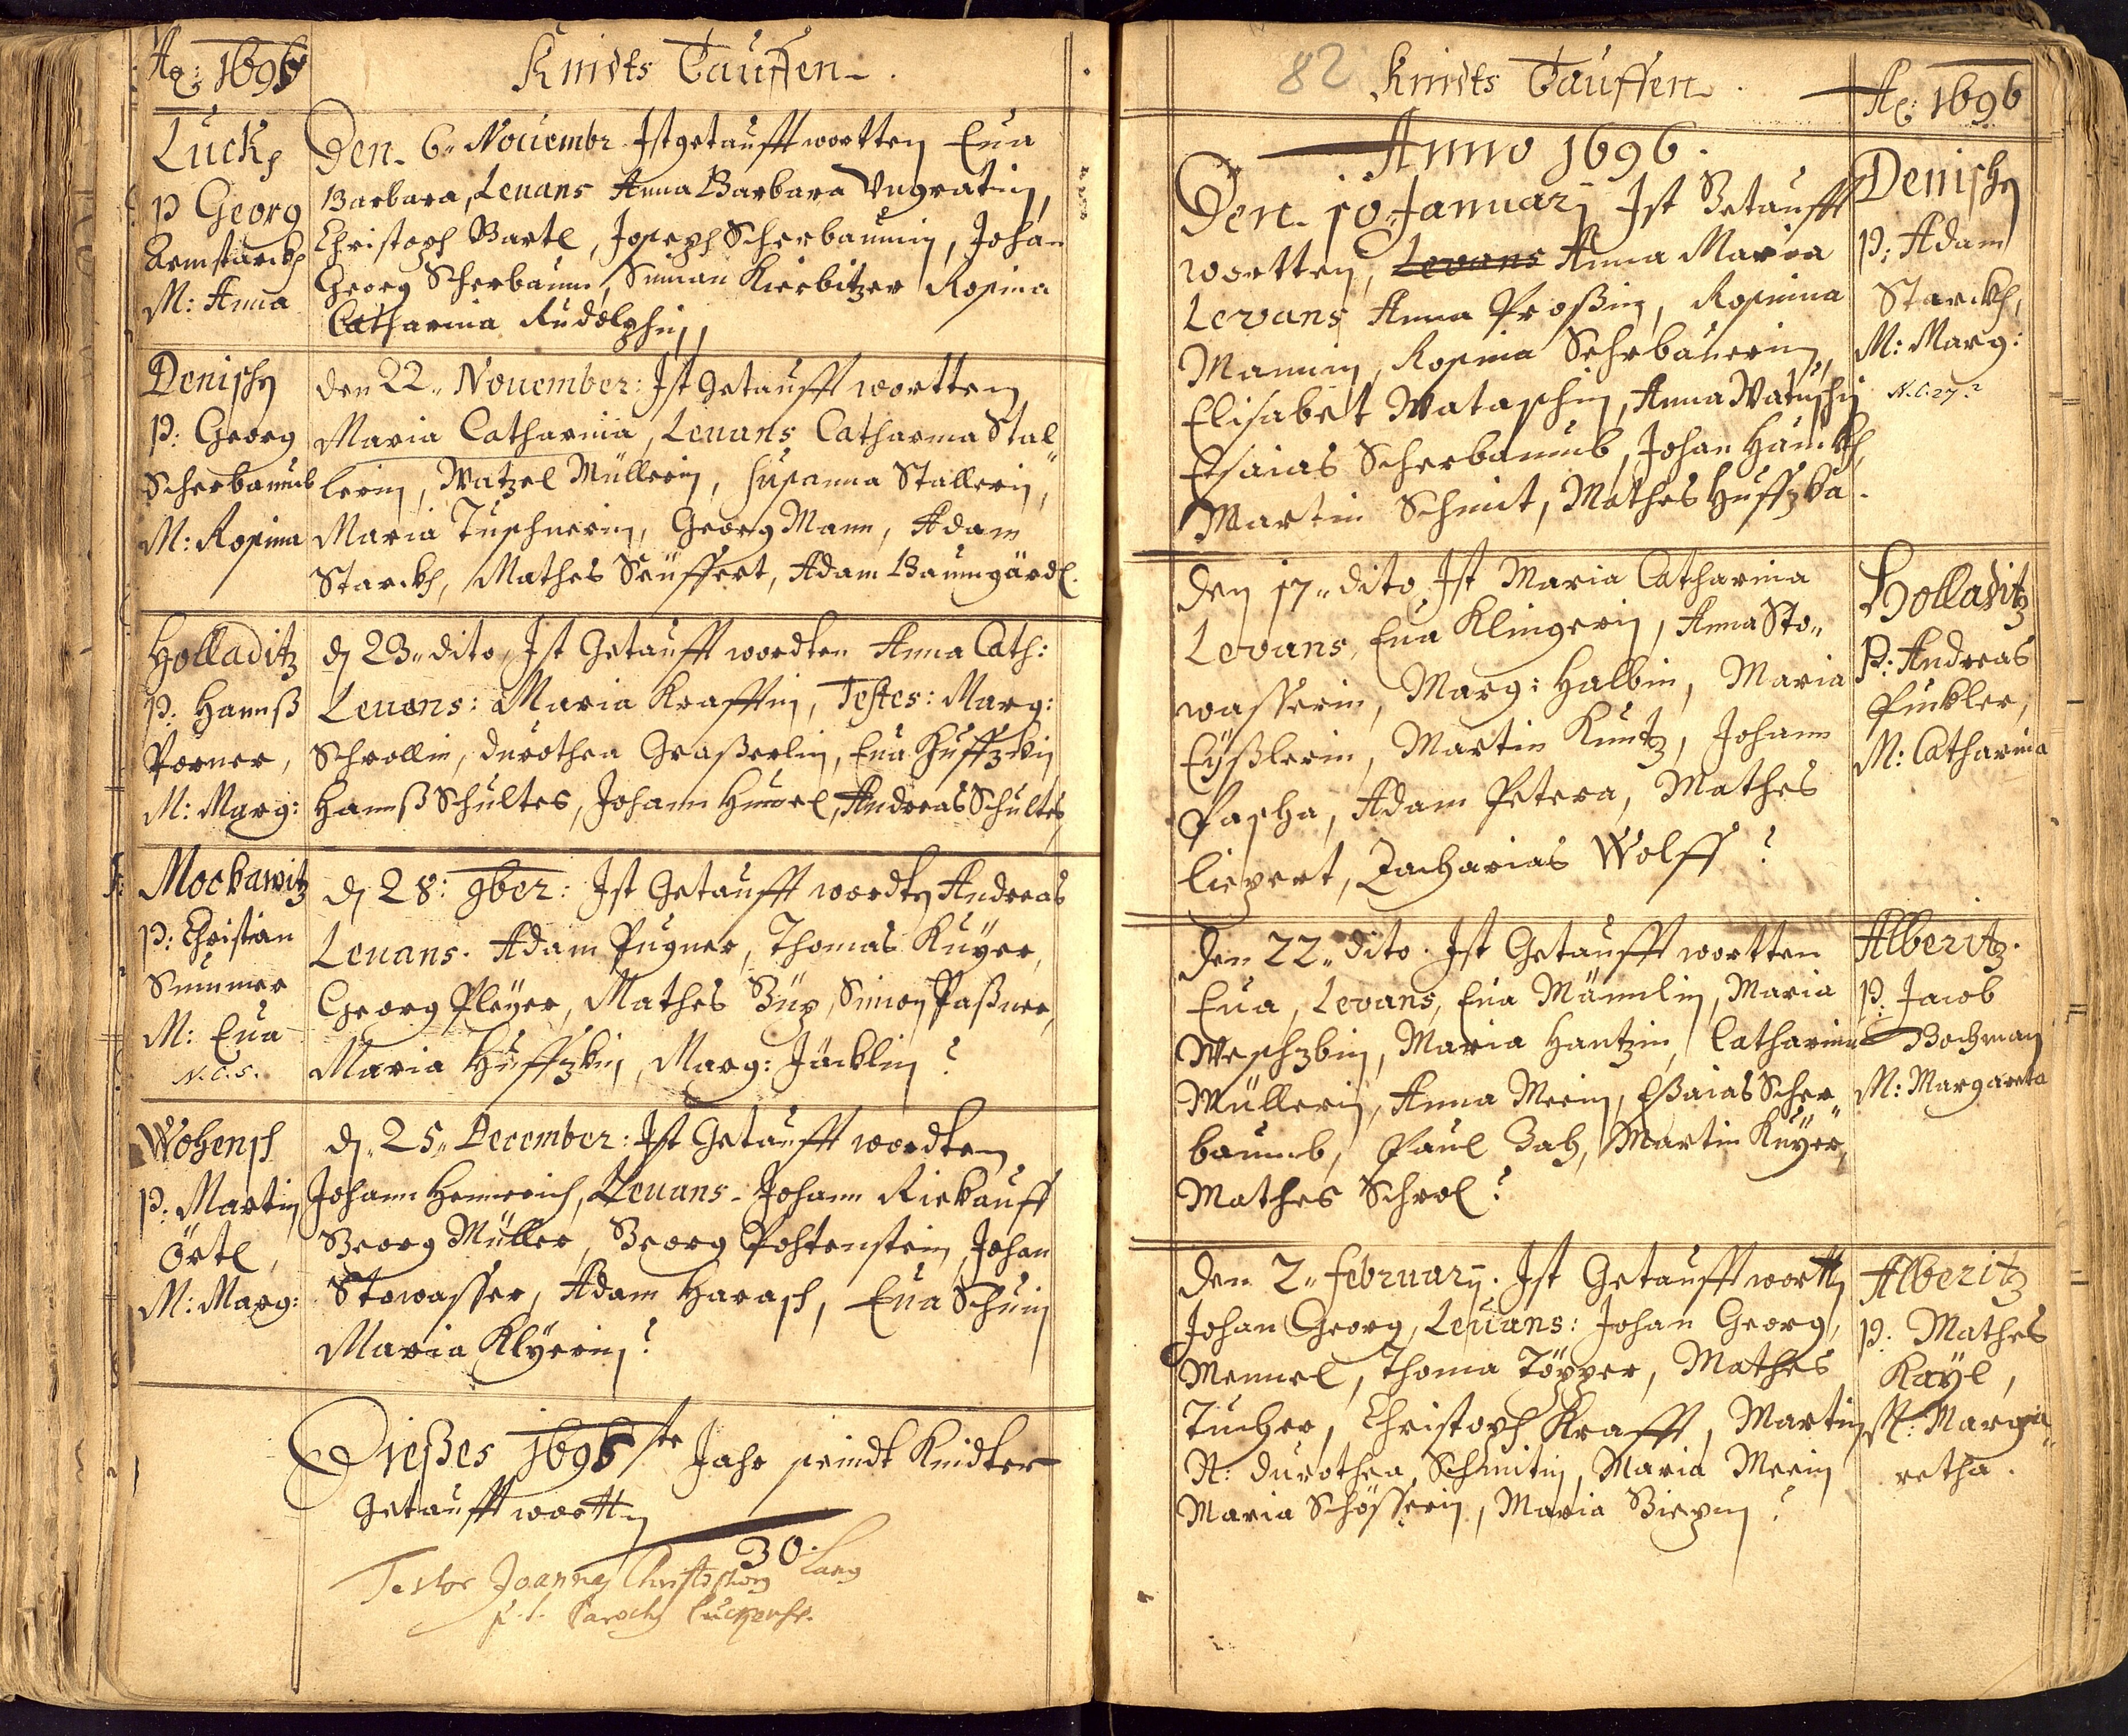 Aº: 1695
Kindts Tauffen.
Luck,
P Georg
M: Anna
Den 6 Nouembr Ist getaufft wortten Eua
Barbara, Leuans Anna Barbara Vngratin,
Christoph Bartl, Joseph Scherbaumin, Johan
Georg Scherbaum, Siman Kierbitzer Rosina
Catharina Rudolphin,
Denisch
P: Georg
Scherbaumb
M: Rosina
den 22 Nouember: Ist getaufft wortten
Maria Catharina, Leuans Catharina Stal
lerin, Watzel Müllerin, Susanna Stallerin,
Maria Tuschnerin, Georg Mann, Adam
Starckh, Mathes Seüffert, Adam Baumgärdl.
Holladitz
P. Hannß
Porner,
M: Marg:
d 23 dito, Ist Getaufft wordten Anna Cath:
Leuans: Maria Krafftin, Testes: Marg:
Schrollin, durothea Graßerlin, Eua Huffzkin
Hannß Schultes, Johann Andreas Schultes
Mockawitz
P: Christian
Summer
M: Eua
N. C. 5.
d 28: 9ber: Ist Getaufft wordten Andreas
Leuans. Adam Pugner, Thomas Kuÿer,
Georg Pleÿer, Mathes Süß, Simon Paßner,
Maria Huffzkin, Marg: Jäcklin
Wohensch
P: Martin
Örtl,
M: Marg:
d 25 December: Ist Getaufft wordten
Johann Heinrich, Leuans Johann Riekauff
Georg Müller, Georg Pohtenstein, Johan
Stowasser, Adam Harasch, Eua Schuin
Maria Klÿerin
Dießes 1695ste Jahr seindt Kindter
Getaufft wortten
30.
Testor Joannes Christophorus Lang
p. t. Parochus Luczensis.
82 Kindts Tauffen.
Aº: 1696
Anno 1696.
Den 10 Januarj Ist Getaufft
wortten, Levans Anna Maria
Levans Anna Proßin, Rosina
Mannin, Rosina Sehrbauerin,
Elisabet Wataschin, Anna Watuschin
Esaias Scherbaumb, Johan Hänckh,
Martin Schmit, Mathes Huffzka.
Denisch
P: Adam
Starckh,
M: Marg:
N. C. 27.
den 17 dito Ist Maria Catharina
Levans, Eua Klingerin, Anna Sto
wasserin, Marg: Halbin, Maria
Eÿßlerin, Martin Kuntz, Johann
Pascha, Adam Petera, Mathes
Liepert, Zacharias Wolff
Holladitz
P: Andreas
Pinkler,
M: Catharina
den 22 dito. Ist Getaufft wortten
Eua, Levans, Eua Männlin, Maria
Weschzbin, Maria Hantzin, Catharina
Müllerin, Anna Meein, Eßaias Scher
baumb, Paul Zah, Martin Kuÿer,
Mathes Schrol
Alberitz.
P. Jacob
Bochman
M: Margareta
den 2 februarÿ. Ist Getaufft wortten
Johan Georg, Leuans: Johan Georg,
Mennel, Thoma Töpper, Mathes
Tucher, Christoph Krafft, Martin
N: durothea, Schmitin, Maria Meein
Maria Schösserin, Maria
Alberitz
P. Mathes
Kaÿl,
M: Marga
retha.